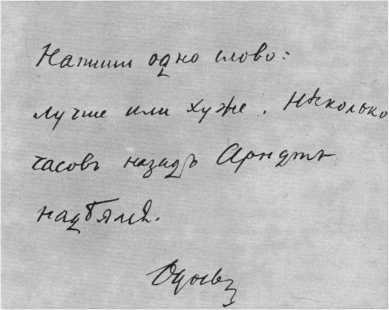 Напиши одно слово:
лучше или хуже. Нѣсколько
часовъ назадъ Арндтъ
надѣялся.
Одоевскій